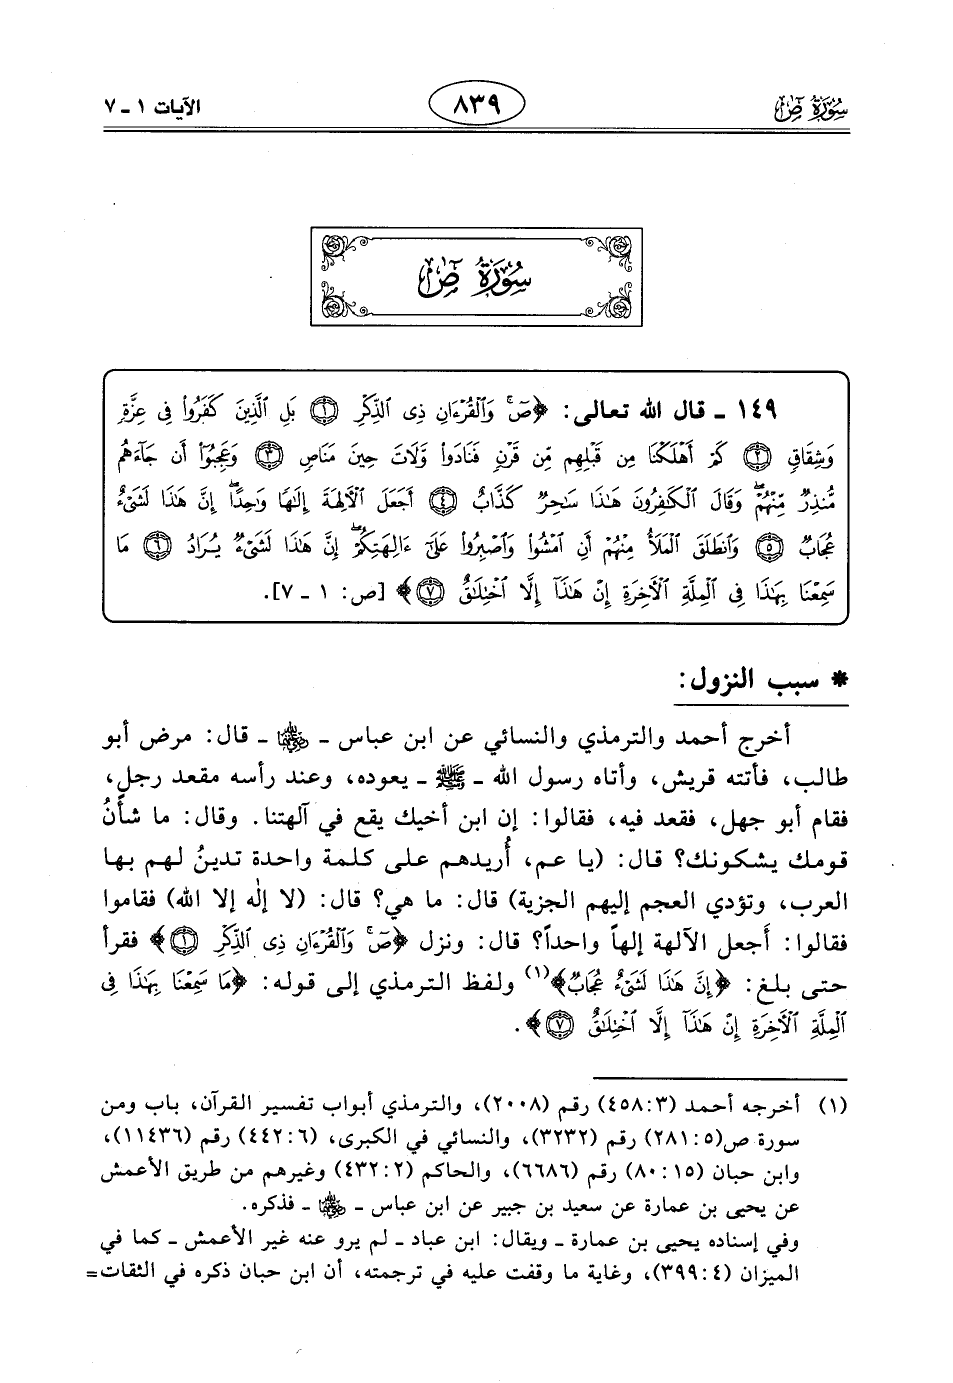 سُورَةُ صٓ
٨٣٩
الآيات ١ ـ ٧
سُورَةُ صٓ
١٤٩ ـ قال الله تعالى: ﴿صٓۚ وَٱلۡقُرۡءَانِ ذِي ٱلذِّكۡرِ ١ بَلِ ٱلَّذِينَ كَفَرُواْ فِي عِزَّةٖ
وَشِقَاقٖ ٢ كَمۡ أَهۡلَكۡنَا مِن قَبۡلِهِم مِّن قَرۡنٖ فَنَادَواْ وَّلَاتَ حِينَ مَنَاصٖ ٣ وَعَجِبُوٓاْ أَن جَآءَهُم
مُّنذِرٞ مِّنۡهُمۡۖ وَقَالَ ٱلۡكَٰفِرُونَ هَٰذَا سَٰحِرٞ كَذَّابٌ ٤ أَجَعَلَ ٱلۡأٓلِهَةَ إِلَٰهٗا وَٰحِدًاۖ إِنَّ هَٰذَا لَشَيۡءٌ
عُجَابٞ ٥ وَٱنطَلَقَ ٱلۡمَلَأُ مِنۡهُمۡ أَنِ ٱمۡشُواْ وَٱصۡبِرُواْ عَلَىٰٓ ءَالِهَتِكُمۡۖ إِنَّ هَٰذَا لَشَيۡءٞ يُرَادُ ٦ مَا
سَمِعۡنَا بِهَٰذَا فِي ٱلۡمِلَّةِ ٱلۡأٓخِرَةِ إِنۡ هَٰذَآ إِلَّا ٱخۡتِلَٰقٌ ٧﴾ [ص: ١ ـ ٧].
* سبب النزول:
أخرج أحمد والترمذي والنسائي عن ابن عباس ـ رضي الله عنهما ـ قال: مرض أبو
طالب، فأتته قريش، وأتاه رسول الله ـ ﷺ ـ يعوده، وعند رأسه مقعد رجلٍ،
فقام أبو جهل، فقعد فيه، فقالوا: إن ابن أخيك يقع في آلهتنا. وقال: ما شأنُ
قومك يشكونك؟ قال: (يا عم، أُريدهم على كلمة واحدة تدينُ لهم بها
العرب، وتؤدي العجم إليهم الجزية) قال: ما هي؟ قال: (لا إله إلا الله) فقاموا
فقالوا: أَجعل الآلهة إلهاً واحداً؟ قال: ونزل ﴿صٓۚ وَٱلۡقُرۡءَانِ ذِي ٱلذِّكۡرِ ١﴾ فقرأ
حتى بلغ: ﴿إِنَّ هَٰذَا لَشَيۡءٌ عُجَابٞ﴾(١) ولفظ الترمذي إلى قوله: ﴿مَا سَمِعۡنَا بِهَٰذَا فِي
ٱلۡمِلَّةِ ٱلۡأٓخِرَةِ إِنۡ هَٰذَآ إِلَّا ٱخۡتِلَٰقٌ ٧﴾.
(١) أخرجه أحمد (٣: ٤٥٨) رقم (٢٠٠٨)، والترمذي أبواب تفسير القرآن، باب ومن
سورة ص(٥: ٢٨١) رقم (٣٢٣٢)، والنسائي في الكبرى، (٦: ٤٤٢) رقم (١١٤٣٦)،
وابن حبان (١٥: ٨٠) رقم (٦٦٨٦)، والحاكم (٢: ٤٣٢) وغيرهم من طريق الأعمش
عن يحيى بن عمارة عن سعيد بن جبير عن ابن عباس ـ رضي الله عنهما ـ فذكره.
وفي إسناده يحيى بن عمارة ـ ويقال: ابن عباد ـ لم يرو عنه غير الأعمش ـ كما في
الميزان (٤: ٣٩٩)، وغاية ما وقفت عليه في ترجمته، أن ابن حبان ذكره في الثقات=